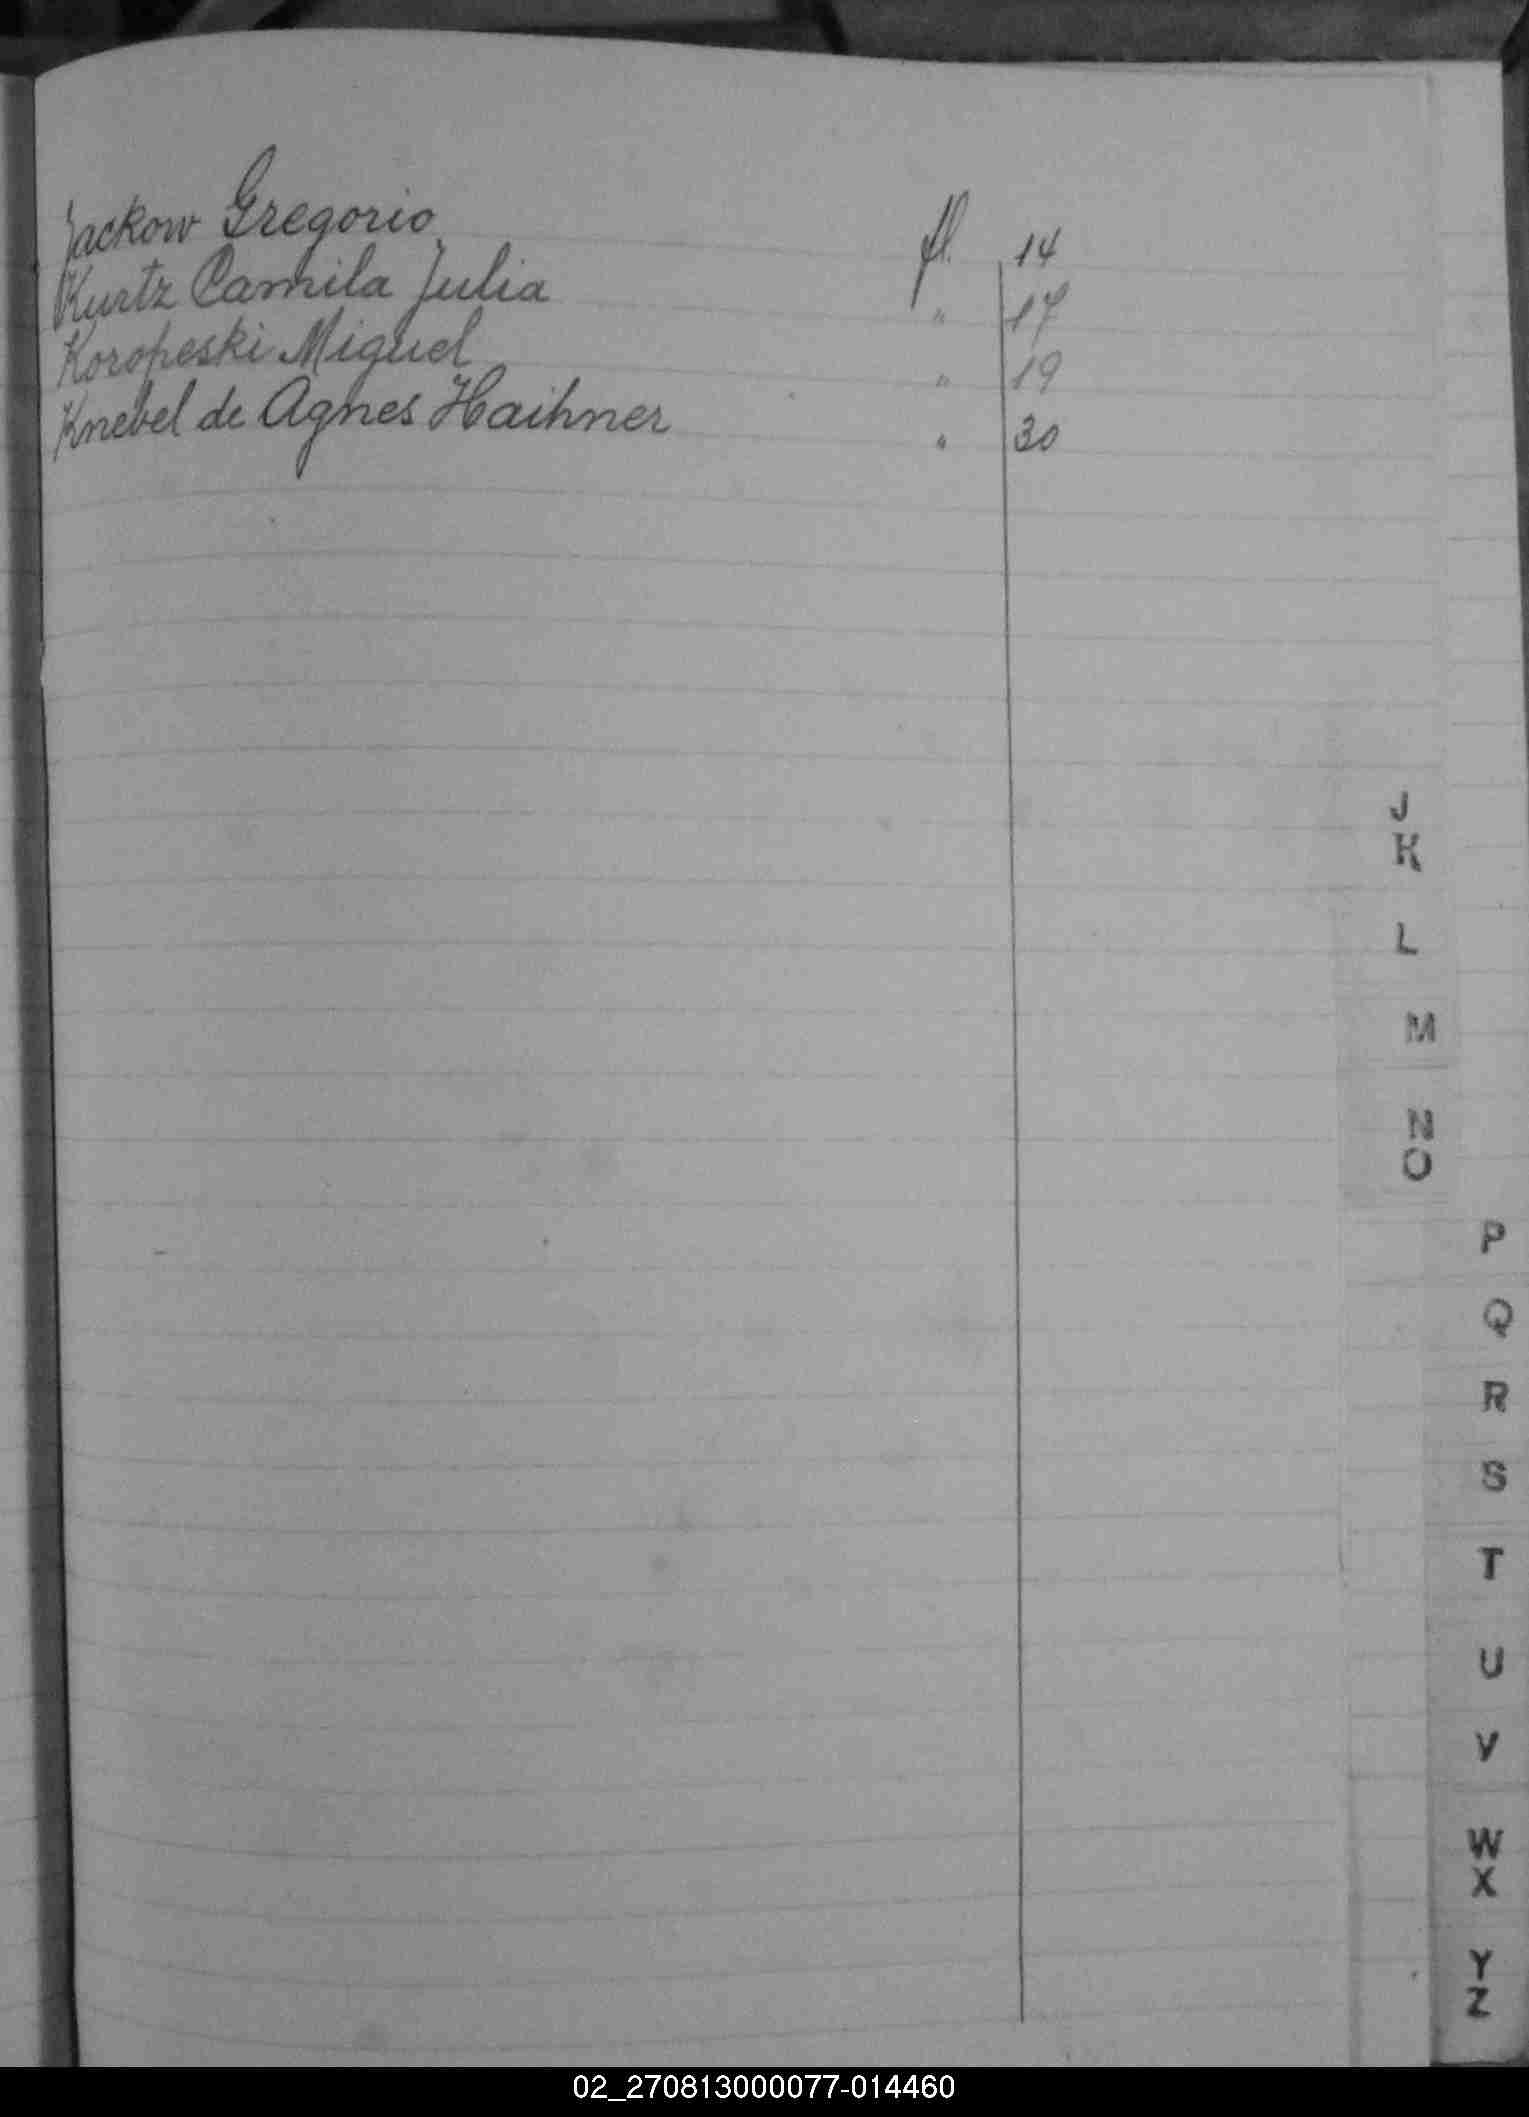 Jackow Gregorio fl. 14
Kurtz Camila Julia " 17
Koropeski Miguel " 19
Knebel de Agnes Haihner " 30
J
K
L
M
N
O
P
Q
R
S
T
U
V
W
X
Y
Z
02_270813000077-014460